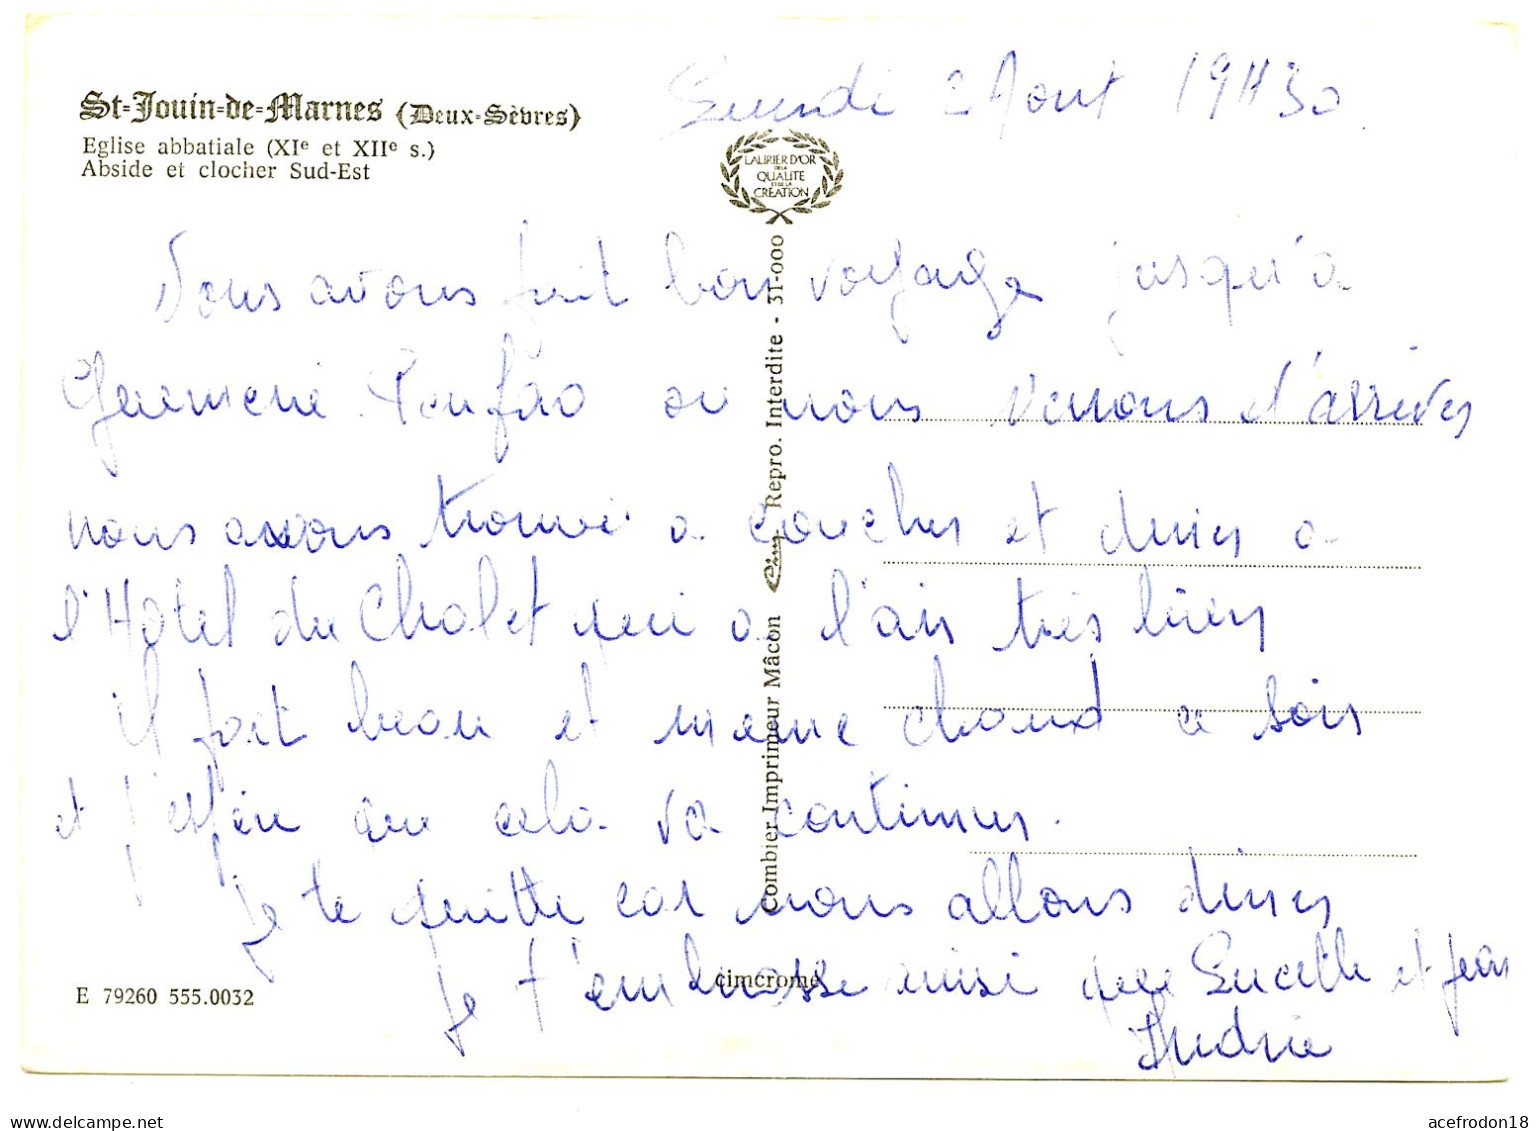 St-Jouin-de-Marnes (Deux-Sèvres)
Eglise abbatiale (XIe et XIIe s.)
Abside et clocher Sud-Est
Lundi 2 Aout 19H30
LAURIER D'OR
DE LA
QUALITE
ET DE LA
CREATION
Nous avons fait bon voyage jusqu'a
Guemené Penfao ou nous venons d'arriver
nous avons trouvé a coucher et diner a
l'Hôtel du Chalet qui a l'air très bien
il fait beau et meme chaud ce soir
et j'espère que cela va continuer.
je te quitte car nous allons diner
je t'embrasse ainsi que Lucette et Jean
Andrée
Combier Imprimeur Mâcon Cim Repro. Interdite - 31-000
cimcrome
E 79260 555.0032
acefrodon18